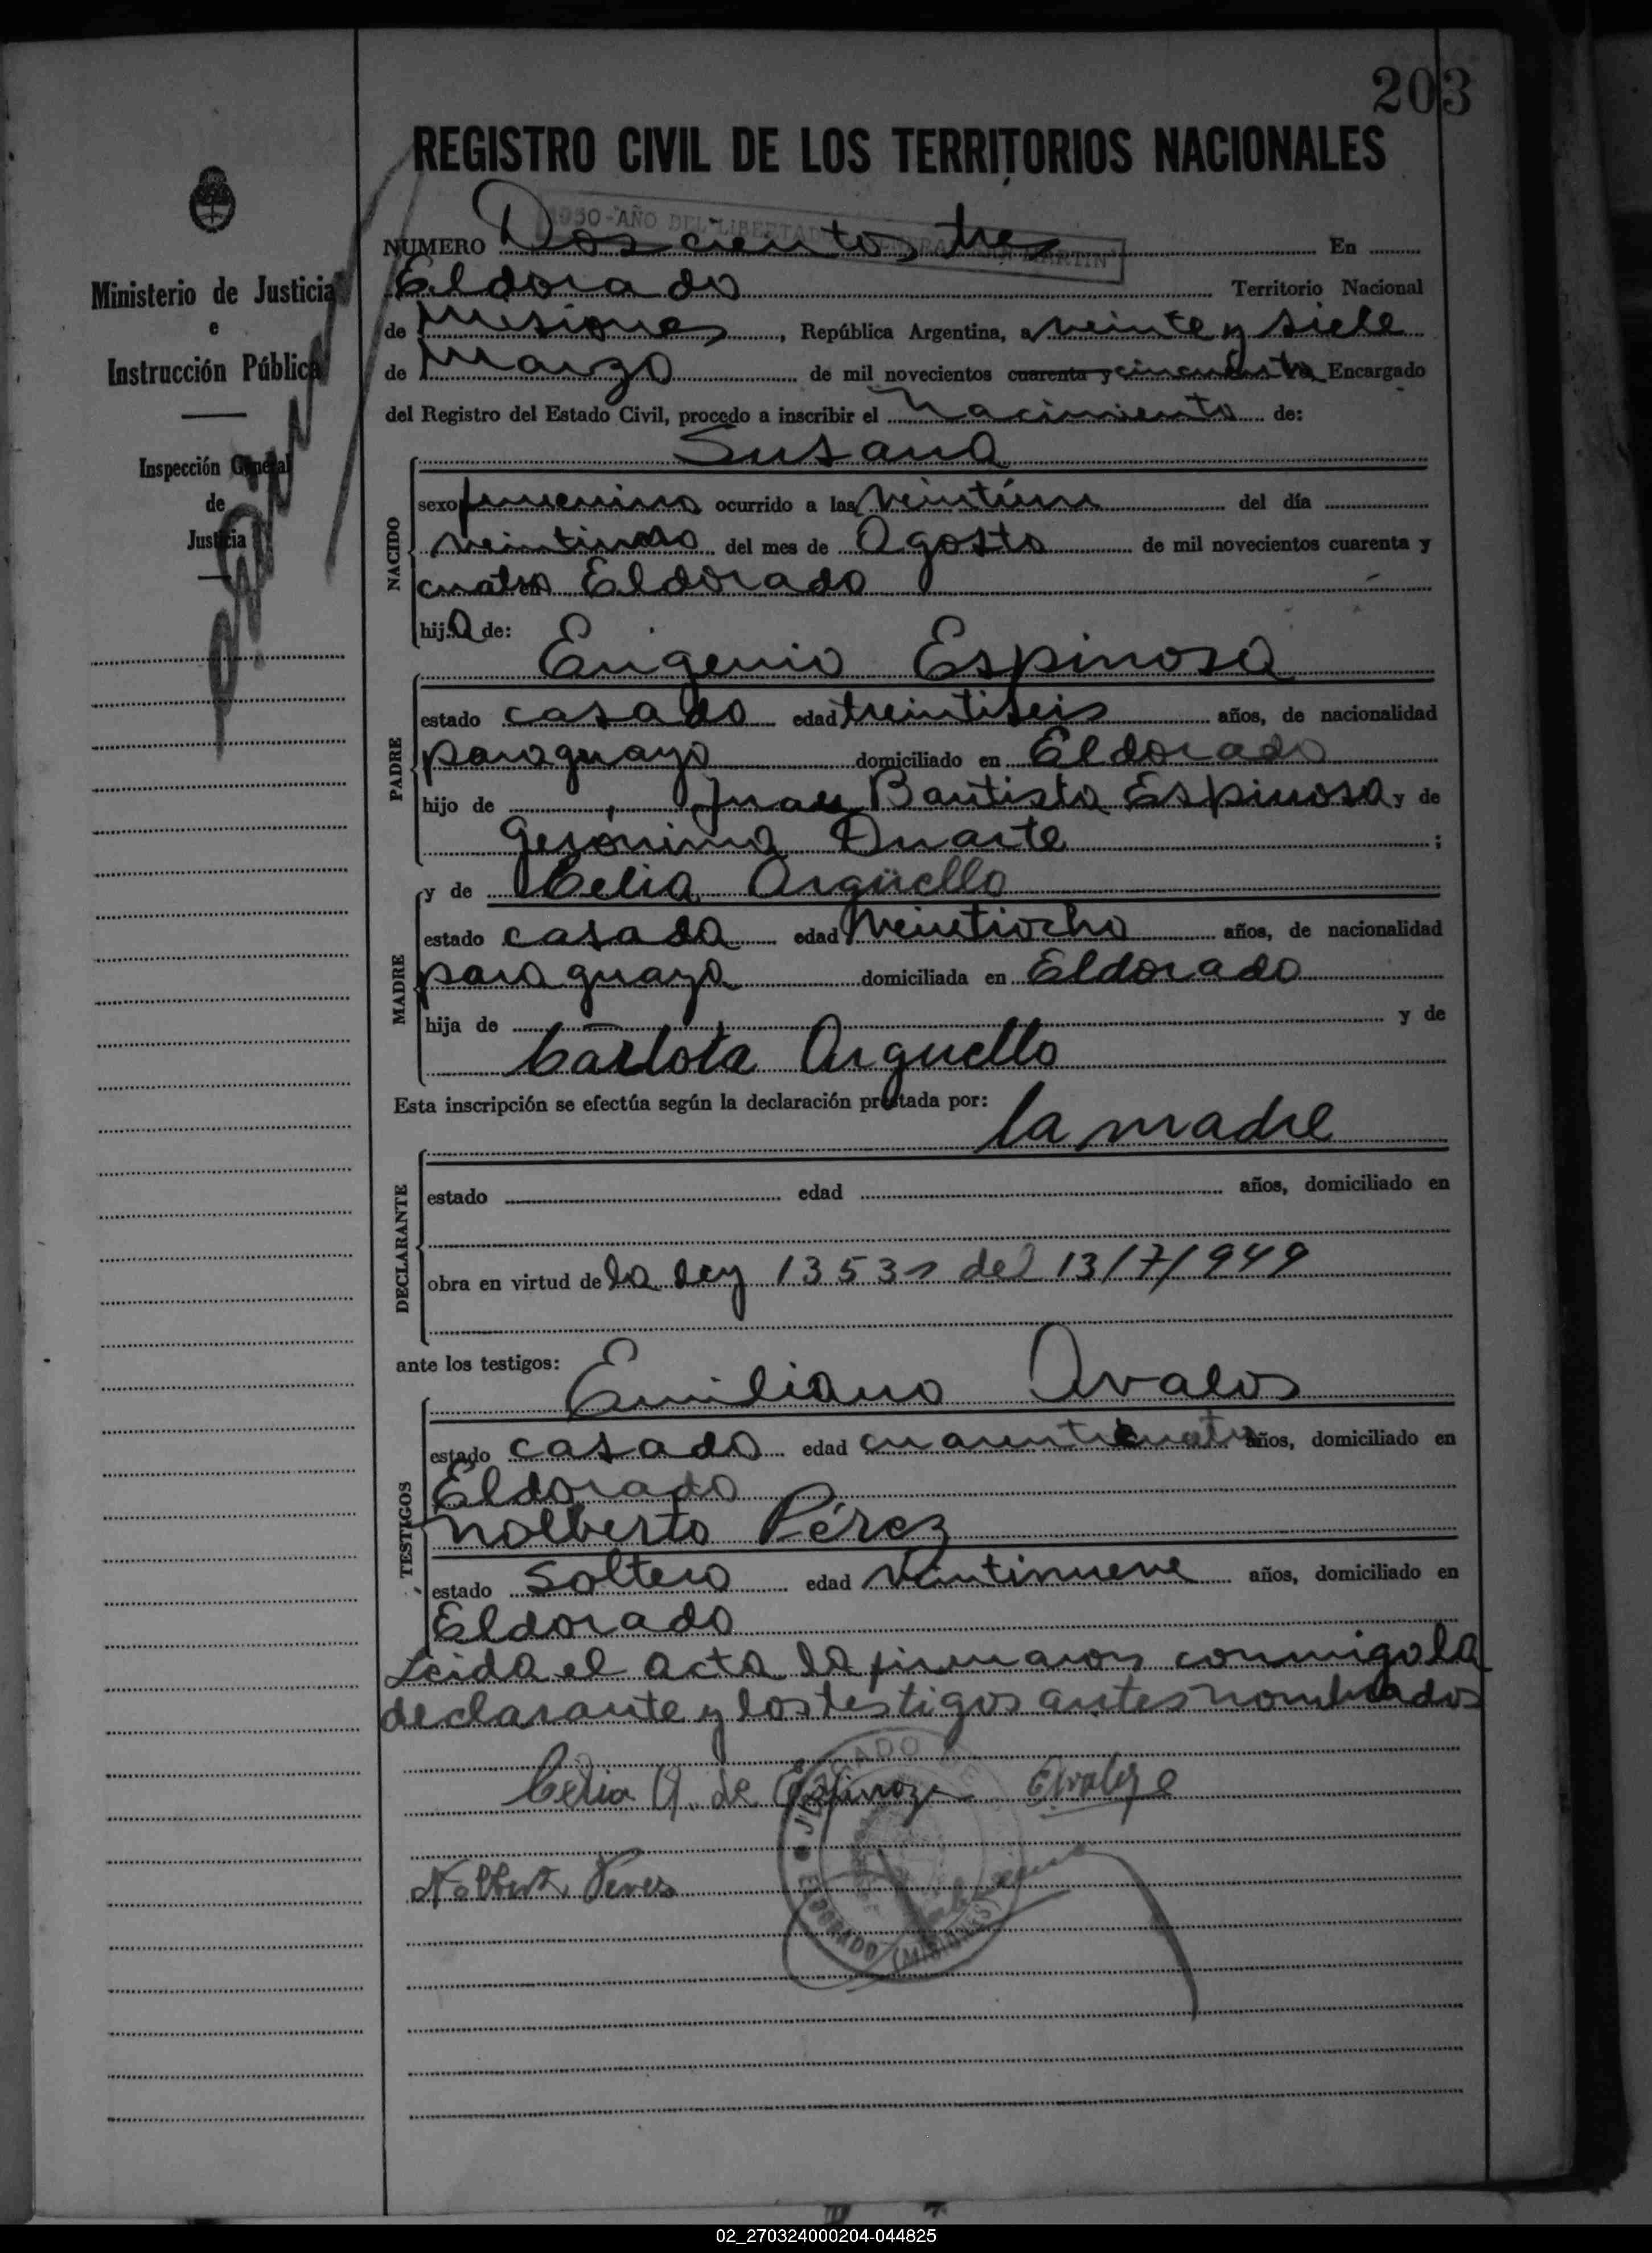 203
REGISTRO CIVIL DE LOS TERRITORIOS NACIONALES
1950-AÑO DEL LIBERTADOR GENERAL SAN MARTIN
NUMERO Doscientos tres En
Eldorado Territorio Nacional
de Misiones, República Argentina, a veinte y siete
de Marzo de mil novecientos cuarenta y cincuenta Encargado
del Registro del Estado Civil, procedo a inscribir el Nacimiento de:
Ministerio de Justicia
e
Instrucción Pública
Inspección General
de
Justicia
Susana
NACIDO
sexo femenino ocurrido a las veintiúna del día
del mes de Agosto de mil novecientos cuarenta y
cuatro en Eldorado
hija de:
Eugenio Espinosa
PADRE
estado casado edad treintiseis años, de nacionalidad
paraguayo domiciliado en Eldorado
hijo de Juan Bautista Espinosa y de
Gerónima Duarte ;
y de Celia Argüello
MADRE
estado casada edad veintiocho años, de nacionalidad
paraguaya domiciliada en Eldorado
hija de y de
Carlota Arguello
Esta inscripción se efectúa según la declaración prestada por:
la madre
DECLARANTE
estado edad años, domiciliado en
obra en virtud de la ley 13531 del 13/7/949
ante los testigos:
Emiliano Avalos
TESTIGOS
estado casado edad cuarenticuatro años, domiciliado en
Eldorado
Nolberto Pérez
estado Soltero edad Veintinueve años, domiciliado en
Eldorado
Leida el acta la firmaron conmigo la
declarante y los testigos antes nombrados
Celia A. de Espinoza
Nolberto Peres
JUZGADO DE
ELDORADO (MISIONES)
02_270324000204-044825